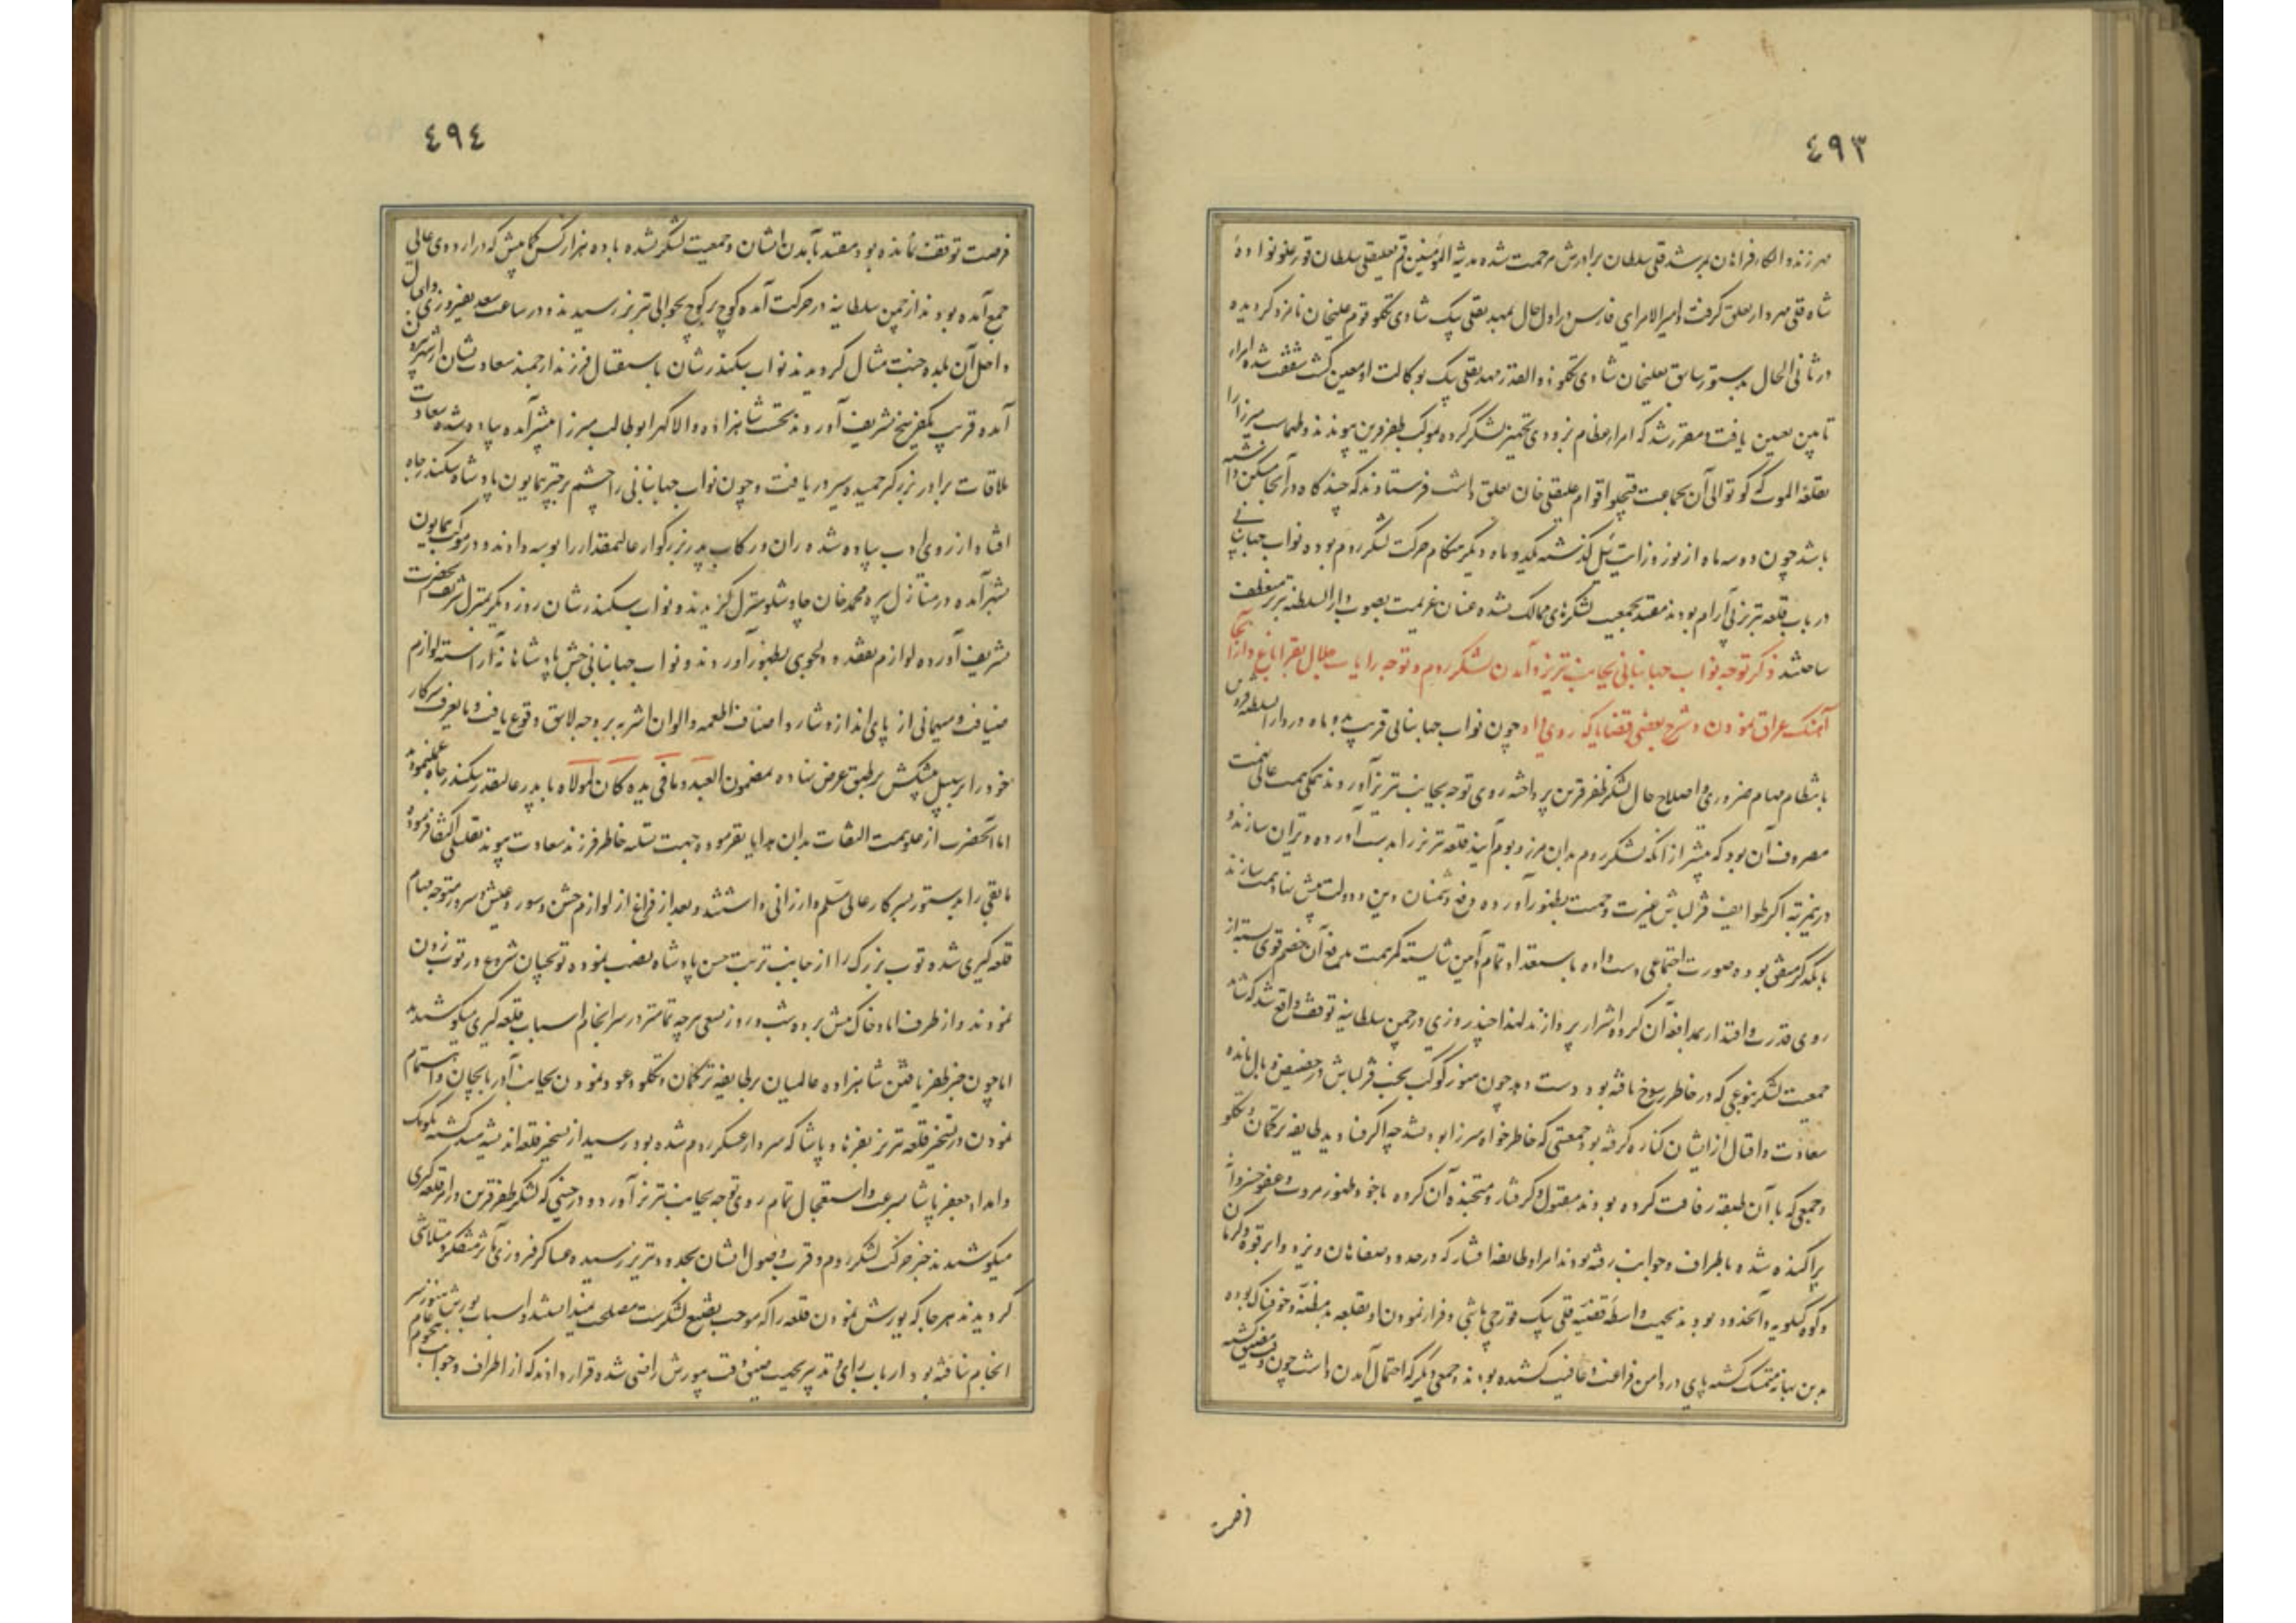 ٤٩٣
مهر زدند و الکاء فراهان بمرشد قلی سلطان برادرش مرحمت شده مدینة المؤمنین قم بعلیقلی سلطان قورغلو نواده
شاه قلی مهردار تعلق گرفت و امیرالامرای فارس در اول حال بمهدیقلی بیک شادی تکلو قوم علیخان نامزد گردیده
در ثانی الحال بدستور سابق بعلیخان شادی تکلو ذوالقدر مهدیقلی بیک بوکالت او معین گشت
تا بین تعیین یافت و مقرر شد که امراء عظام بزودی تجهیز لشکر کرده بموکب ظفر قرین پیوندند و طهماسب میرزا را
بقلعه الموت که کوتوالی آن بجماعت قپچلو اقوام علیقلی خان تعلق داشت فرستادند که چند گاه در آنجا مسکن داشته
باشد چون دو سه ماه از نوروز ایت ئیل گذشته یکدو ماه دیگر هنگام حرکت لشکر روم بود و نواب جهانبانی
در باب قلعه تبریز بی آرام بودند مقید بجمعیت لشکرهای ممالک نشده عنان عزیمت بصوب دارالسلطنه تبریز منعطف
ساختند ذکر توجه نواب جهانبانی بجانب تبریز و آمدن لشکر روم و توجه رایات جلال بقراباغ و از آنجا
آهنگ عراق نمودن و شرح بعضی قضایا که روی داد چون نواب جهانبانی قریب بدو ماه در دارالسلطنه قزوین
بانتظام مهام ضروری و اصلاح حال لشکر ظفر قرین پرداخته روی توجه بجانب تبریز آوردند همگی همت عالی نهمت
مصروف آن بود که پیشتر از آنکه لشکر روم بدان مرز و بوم آیند قلعه تبریز را بدست آورده ویران سازند و
درینمرتبه اگر طوایف قزلباش غیرت و حمیت بظهور آورده دفع دشمنان دین و دولت پیش نهاد همت سازند
با یکدیگر متفق بوده صورت اجتماعی دست داده باستعداد تمام و آیین شایسته کمر همت بدفع آن خصم قوی بسته از
روی قدرت و اقتدار بمدافعه آن گروه اشرار پردازند لهذا چند روزی در چمن سلطانیه توقف واقع شد که شاید
جمعیت لشکر بنوعی که در خاطر رسوخ یافته بود دست دهد چون هنوز کوکب بخت قزلباش در حضیض وبال مانده
سعادت و اقبال از ایشان کناره گرفته بود جمعیتی که خاطر خواه میرزا بود نشد چه اکثر صنادید طایفه ترکمان و تکلو
و جمعی که با آن طبقه رفاقت کرده بودند مقتول و گرفتار و منتخبه آن گروه با وجود ظهور مروت و عفو خسروانه
پراکنده شده باطراف و جوانب رفته بودند امراء طایفه افشار که در حدود صفاهان و یزد و ابرقوه و کرمان
و کوه گیلویه و آنحدود بودند بجهت واسطه قضیه قلی بیک قورچی باشی و فرار نمودن او بقلعه بدمظنه و خوفناک بوده
بدین بهانه متمسک گشته پای در دامن فراغت و عافیت کشیده بودند و جمعی دیگر که احتمال آمدن داشت چون وقت مضیق گشته
فرصت
٤٩٤
فرصت توقف نمانده بود مقید بآمدن ایشان و جمعیت لشکر نشده با ده هزار کس کمابیش که در اردوی عالی
جمع آمده بودند از چمن سلطانیه در حرکت آمده کوچ بر کوچ بحوالی تبریز رسیدند و در ساعت سعد بفیروزی و اقبال
داخل آن بلده جنت مثال گردیدند نواب سکندرشان باستقبال فرزند ارجمند سعادت نشان از شهر بیرون
آمده قریب بیکفرسخ تشریف آوردند نخست شاهزاده والاگهر ابوطالب میرزا پیشتر آمده پیاده شده سعادت
ملاقات برادر بزرگتر حمیده سیر دریافت و چون نواب جهانبانی را چشم بر چتر همایون پادشاه سکندر جاه
افتاد از روی ادب پیاده شده ران و رکاب پدر بزرگوار عالیمقدار را بوسه دادند و در موکب همایون
بشهر آمده در منازل پیره محمد خان چاوشلو منزل گزیدند و نواب سکندر شان روز دیگر بمنزل شریف آنحضرت
تشریف آورده لوازم تفقد و دلجوی بظهور آوردند و نواب جهانبانی جشن پادشاهانه آراسته لوازم
ضیافت و مهمانی از پای انداز و نثار و اصناف اطعمه و الوان اشربه بر وجه لایق وقوع یافت و مایعرف سرکار
خود را بر سبیل پیشکش بر طبق عرض نهاده بمضمون العبد و ما فی یده کان لمولاه با پدر عالیقدر سکندر جاه عمل نمود
اما آنحضرت از علو همت التفات بدان هدایا نفرموده جهت تسلیه خاطر فرزند سعادت پیوند بقلیلی اکتفا فرموده
مابقی را بدستور بسرکار عالی مسلم و ارزانی داشتند و بعد از فراغ از لوازم جشن و سور و عیش و سرور متوجه مهام
قلعه گیری شده توپ بزرگ را از جانب تربت حسن پادشاه نصب نموده توپچیان شروع در توپ زدن
نمودند و از طرف امرا خاک پیش برده شب و روز بسعی هرچه تمامتر در سرانجام اسباب قلعه گیری میکوشیدند
اما چون خبر ظفر یافتن شاهزاده عالمیان بر طایفه ترکمان و تکلو و عود نمودن بجانب آذربایجان و اهتمام
نمودن در تسخیر قلعه تبریز بفرهاد پاشا که سردار عسکر روم شده بود رسید از تسخیر قلعه اندیشه مند گشته بکومک
و امداد جعفر پاشا بسرعت و استعجال تمام روی توجه بجانب تبریز آورد و در حینی که لشکر ظفر قرین در امر قلعه گیری
میکوشیدند خبر حرکت لشکر روم و قرب وصول ایشان بحدود تبریز رسیده عساکر فیروزی مآثر متفکر و متلاشی
گردیدند هر جا که یورش نمودن قلعه را که موجب تضییع لشکرست مصلحت نمیدانستند و اسباب یورش هنوز سر
انجام نیافته بود ارباب رای و تدبیر بجهت ضیق وقت بیورش راضی شده قرار دادند که از اطراف و جوانب هجوم عام